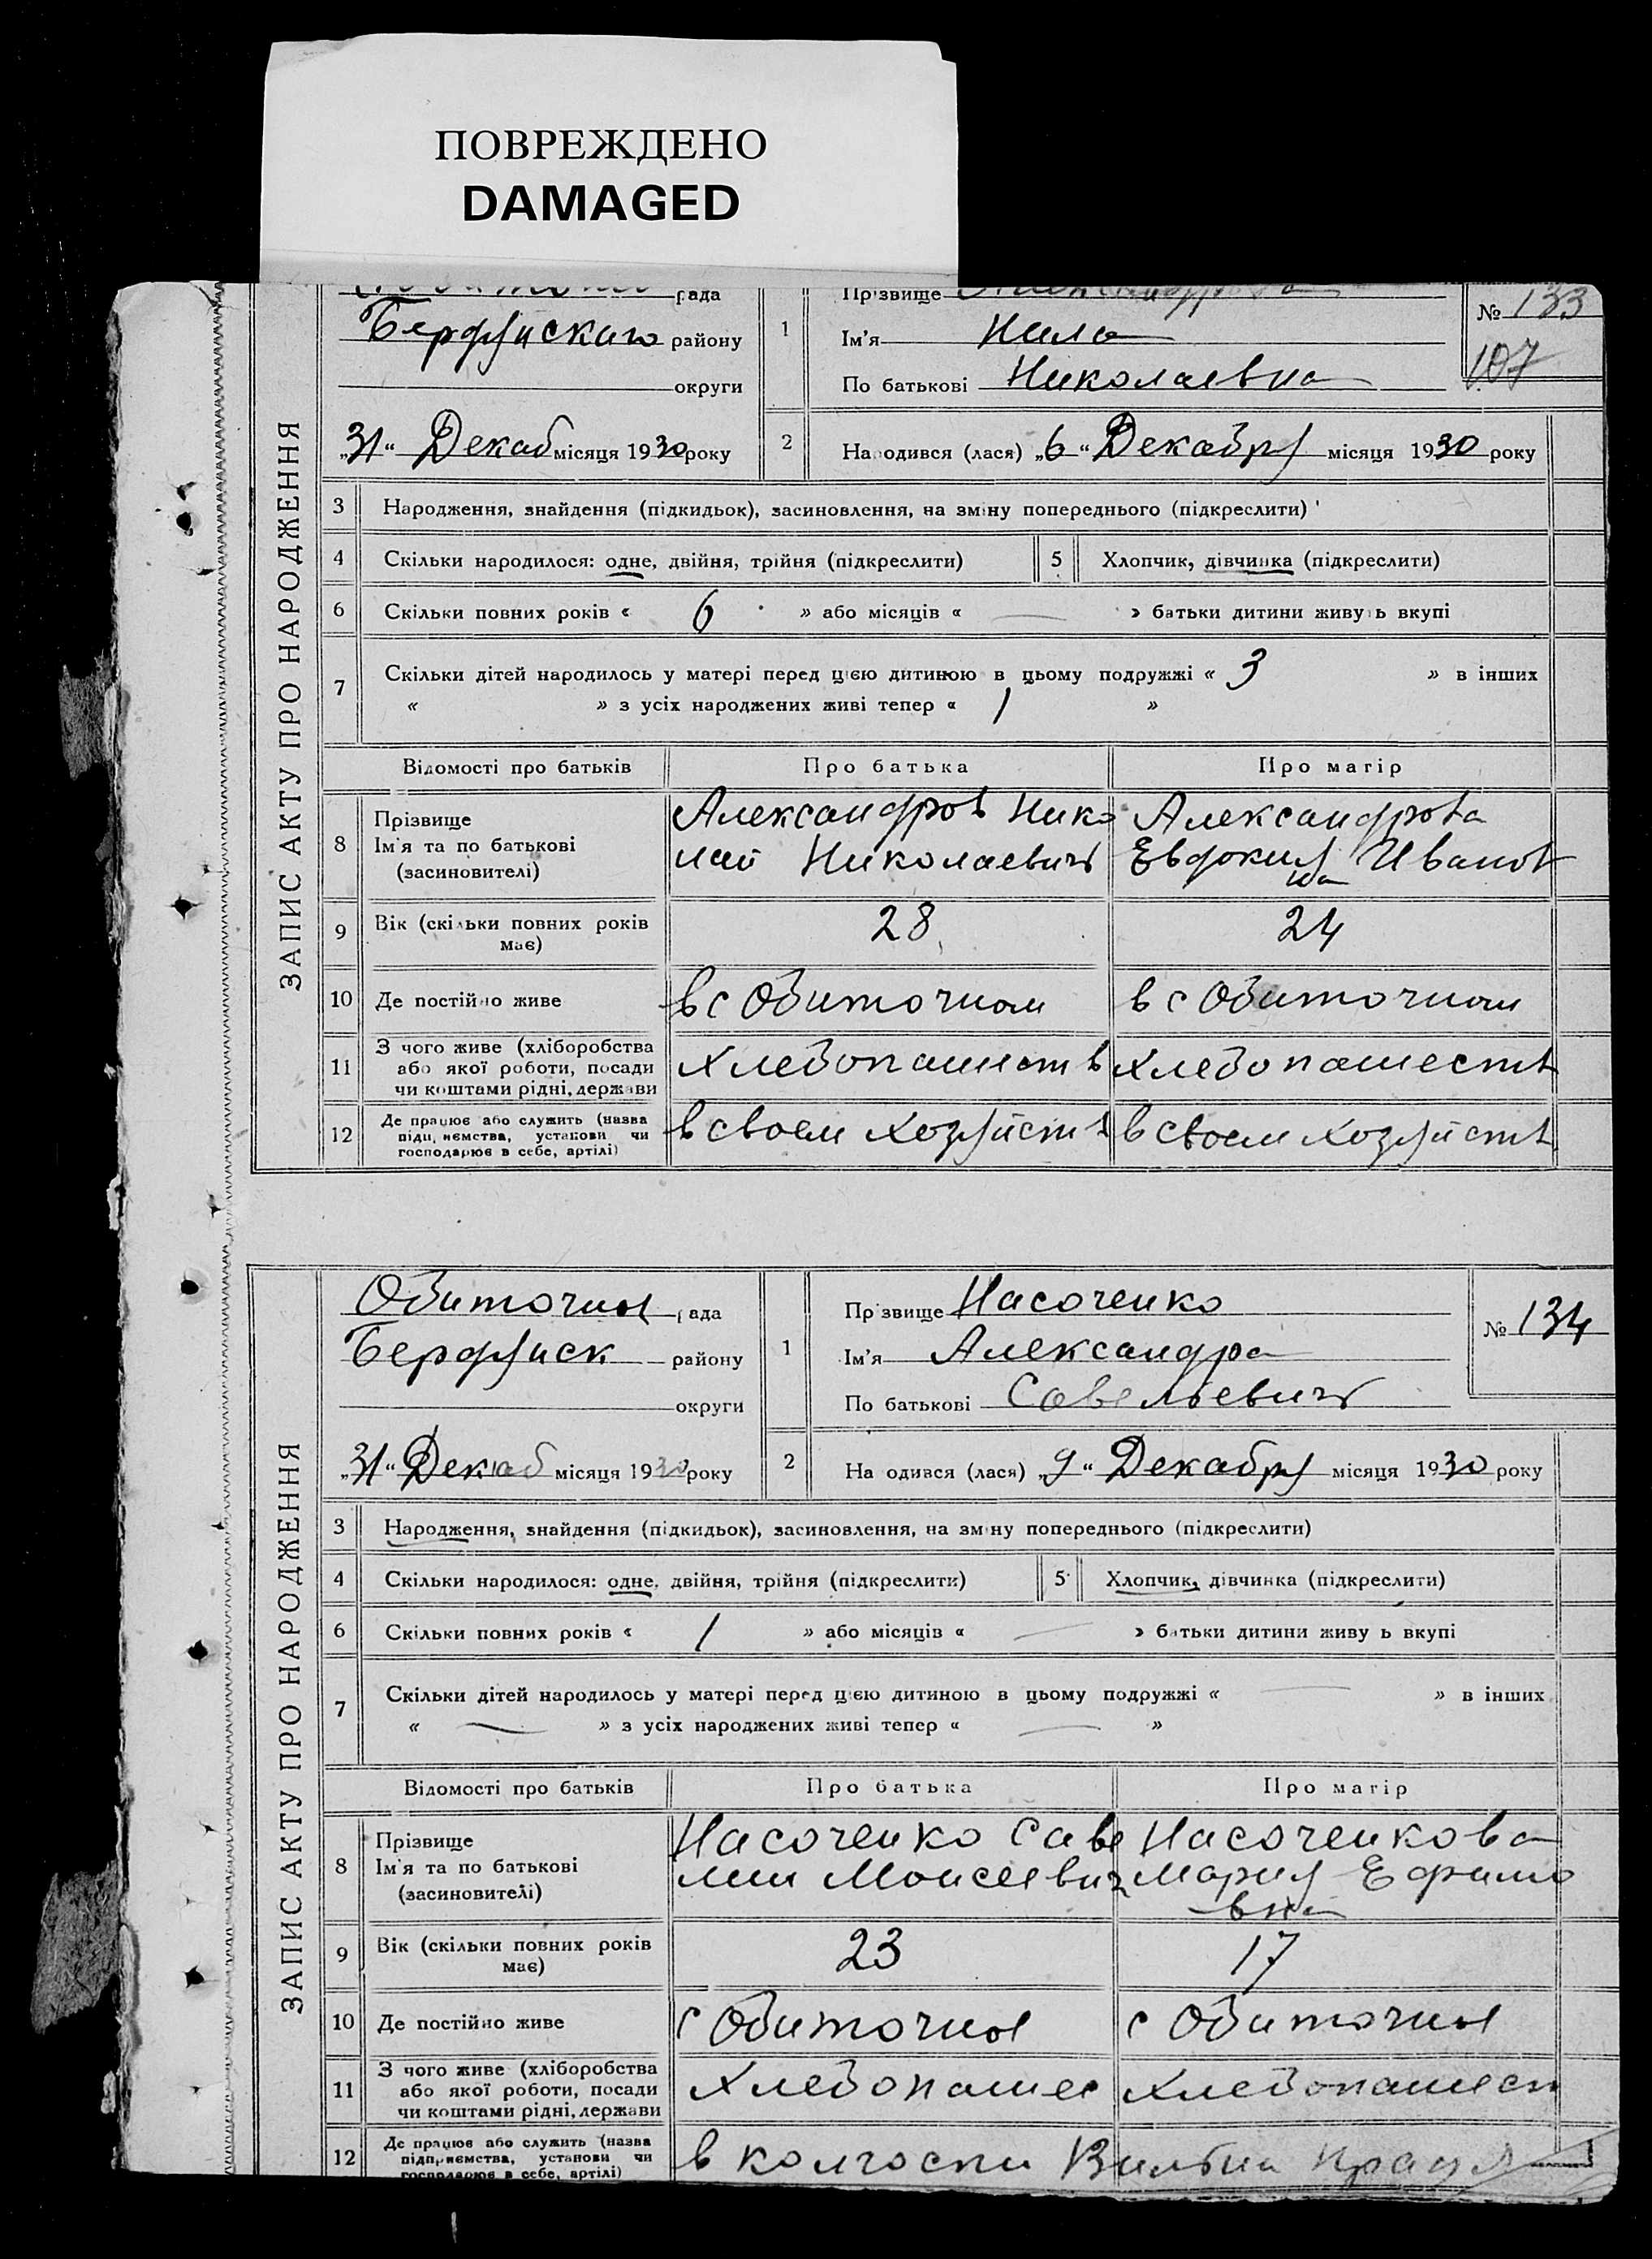 ПОВРЕЖДЕНО
DAMAGED
ЗАПИС АКТУ ПРО НАРОДЖЕННЯ
рада
Бердянского району
округи
„31“ Декаб місяця 1930 року
1
Прізвище Александрова
Ім'я
По батькові Николаевна
№ 133
107
2
Народився (лася) „6“ Декабря місяця 1930 року
3 Народження, знайдення (підкидьок), засиновлення, на зміну попереднього (підкреслити)
4 Скільки народилося: одне, двійня, трійня (підкреслити) 5 Хлопчик, дівчинка (підкреслити)
6 Скільки повних років « 6 » або місяців « — » батьки дитини живуть вкупі
7 Скільки дітей народилось у матері перед цією дитиною в цьому подружжі « 3 » в інших
« » з усіх народжених живі тепер « 1 »
Відомості про батьків Про батька Про матір
8 Прізвище
Ім'я та по батькові
(засиновителі)
Александров Нико
лай Николаевич
Александрова
Евдокия Иванов
на
9 Вік (скільки повних років
має)
28
24
10 Де постійно живе
в с Обиточном
в с Обиточном
11 З чого живе (хліборобства
або якої роботи, посади
чи коштами рідні, держави
Хлебопашеств
Хлебопашеств
12 Де працює або служить (назва
підприємства, установи чи
господарює в себе, артілі)
в своем хозяйств
в своем хозяйств
ЗАПИС АКТУ ПРО НАРОДЖЕННЯ
Обиточн рада
Бердянск району
округи
„31“ Декаб місяця 1930 року
1
Прізвище Насоченко
Ім'я Александра
По батькові Савельевич
№ 134
2
Народився (лася) „9“ Декабря місяця 1930 року
3 Народження, знайдення (підкидьок), засиновлення, на зміну попереднього (підкреслити)
4 Скільки народилося: одне, двійня, трійня (підкреслити) 5 Хлопчик, дівчинка (підкреслити)
6 Скільки повних років « 1 » або місяців « — » батьки дитини живуть вкупі
7 Скільки дітей народилось у матері перед цією дитиною в цьому подружжі « — » в інших
« — » з усіх народжених живі тепер « — »
Відомості про батьків Про батька Про матір
8 Прізвище
Ім'я та по батькові
(засиновителі)
Насоченко Саве
лий Моисеевич
Насоченкова
Мария Ефимо
вна
9 Вік (скільки повних років
має)
23
17
10 Де постійно живе
с Обиточн
с Обиточн
11 З чого живе (хліборобства
або якої роботи, посади
чи коштами рідні, держави
Хлебопашес
Хлебопашест
12 Де працює або служить (назва
підприємства, установи чи
господарює в себе, артілі)
в колгоспи Вильна Праця